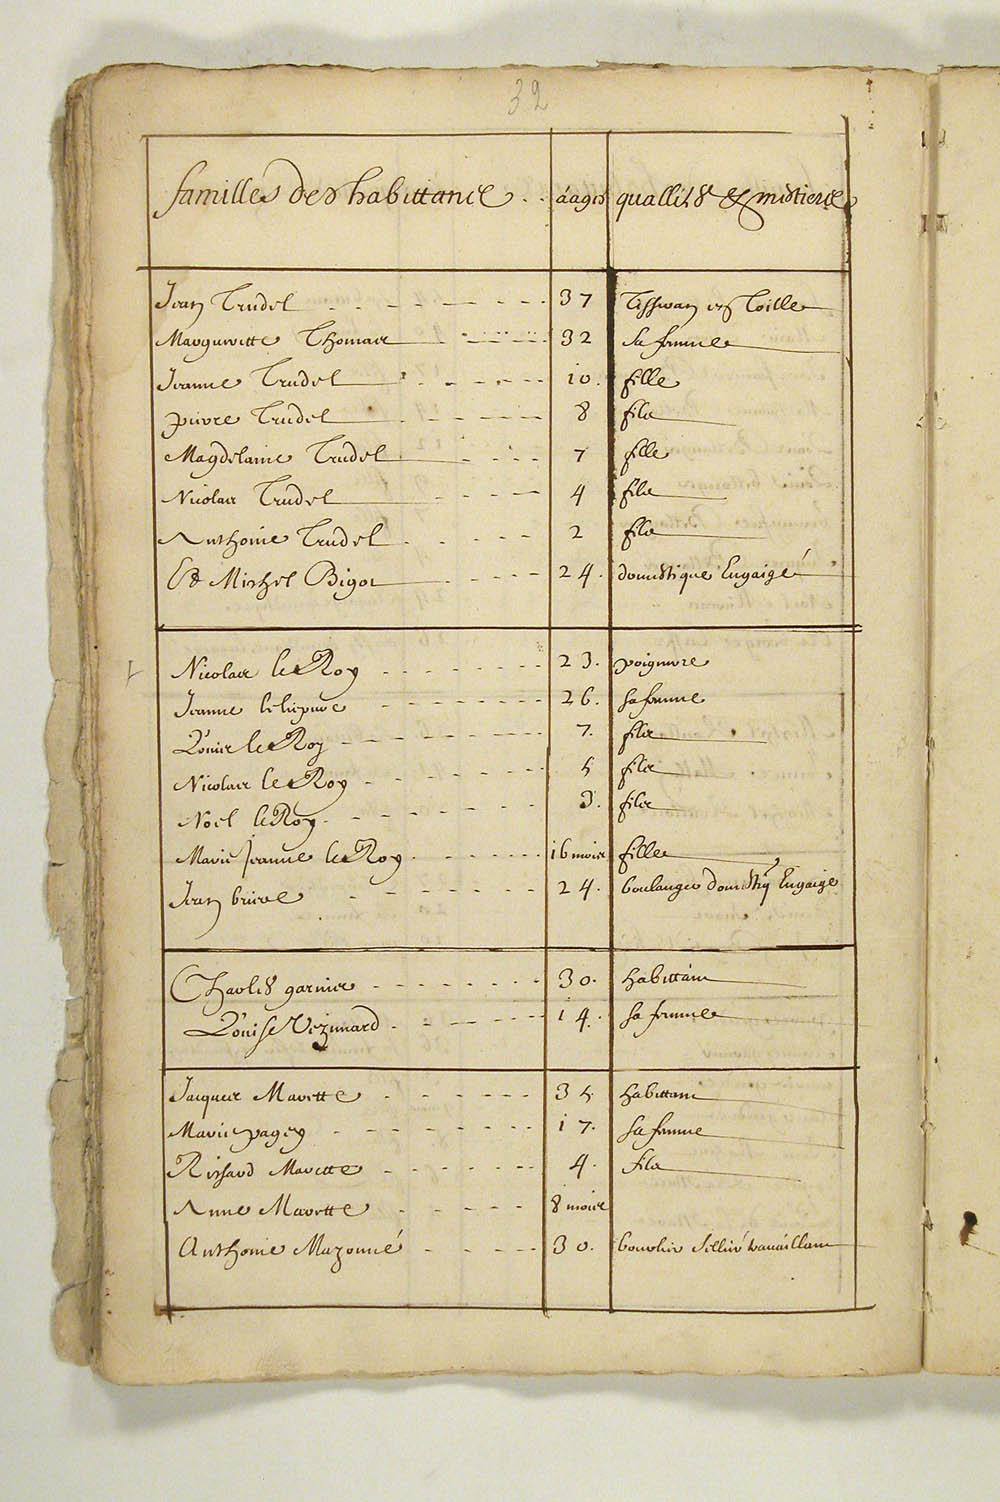 32
familles des habittans .. aages quallités & mestiers
Jean Trudel 37 Tisseran en Toille
Margueritte Thomas 32 sa femme
Jeanne Trudel 10. fille
pierre Trudel 8 fils
Magdelaine Trudel 7 fille
Nicolas Trudel 4 fils
Anthoine Trudel 2 fils
Et Michel Bigot 24. domestique Engaigé
Nicolas le Roy 23. peigneure
Jeanne leliepvre 26. sa femme
Louis le Roy 7. fils
Nicolas le Roy 5 fils
Noel le Roy 3. fils
Marie Jeanne le Roy 16 mois fille
Jean briere 24. boulanger domestiq Engaigé
Charles garnier 30. habittant
Louise Vezinnard 14. sa femme
Jacques Marette 35. habittant
Marie pagey 17. sa femme
Richard Marette 4. fils
Anne Marette 8 mois
Anthoine Mazonné 30. bourlier sellier travaillant